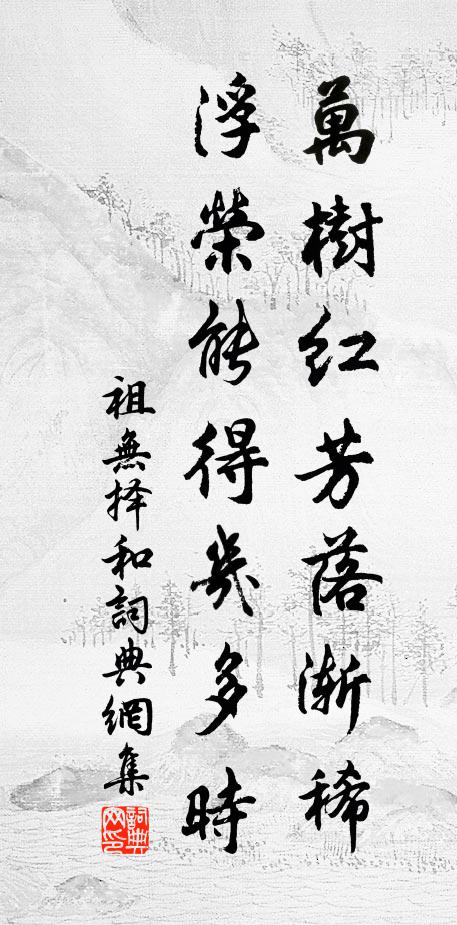 萬樹红芳落渐稀
浮榮能得幾多時
祖無择和詞典網集
詞典
网印